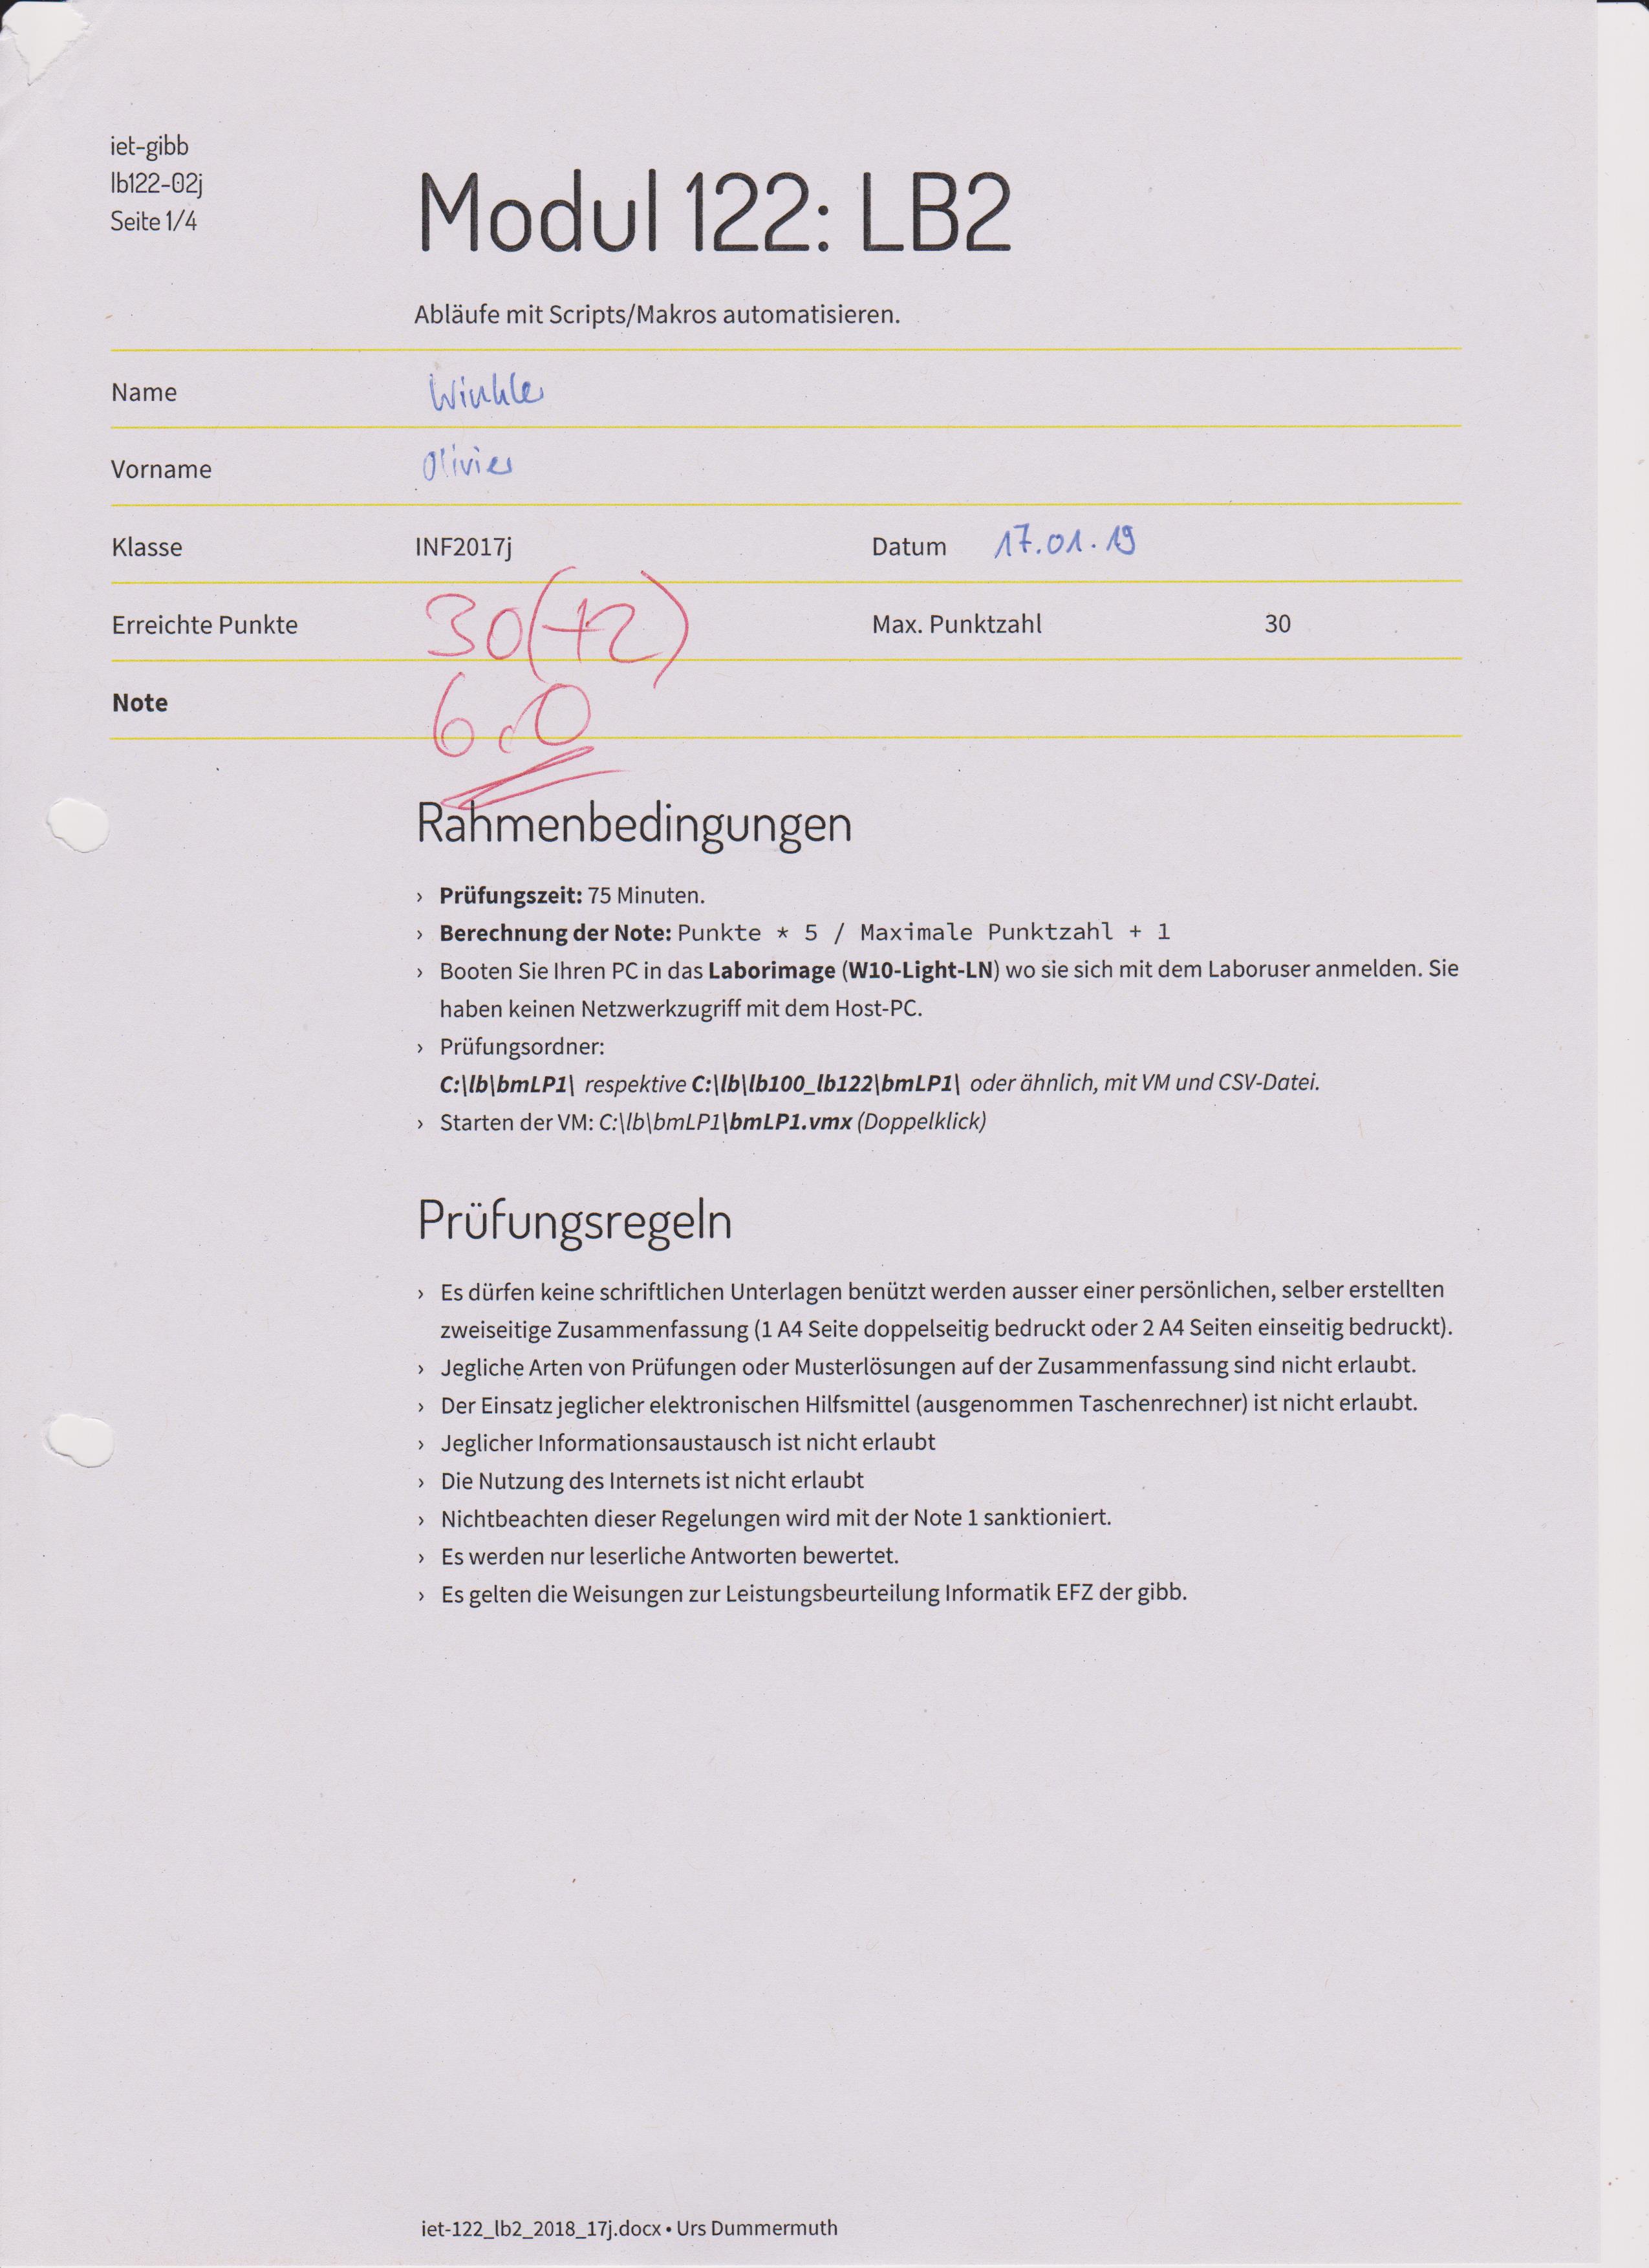 iet-gibb
lb122-02j
Seite 1/4
Modul 122: LB2
Abläufe mit Scripts/Makros automatisieren.
Name Winkler
Vorname Olivier
Klasse INF2017j Datum 17.01.19
Erreichte Punkte 30(+2) Max. Punktzahl 30
Note 6.0
Rahmenbedingungen
› Prüfungszeit: 75 Minuten.
› Berechnung der Note: Punkte * 5 / Maximale Punktzahl + 1
› Booten Sie Ihren PC in das Laborimage (W10-Light-LN) wo sie sich mit dem Laboruser anmelden. Sie
haben keinen Netzwerkzugriff mit dem Host-PC.
› Prüfungsordner:
C:\lb\bmLP1\ respektive C:\lb\lb100_lb122\bmLP1\ oder ähnlich, mit VM und CSV-Datei.
› Starten der VM: C:\lb\bmLP1\bmLP1.vmx (Doppelklick)
Prüfungsregeln
› Es dürfen keine schriftlichen Unterlagen benützt werden ausser einer persönlichen, selber erstellten
zweiseitige Zusammenfassung (1 A4 Seite doppelseitig bedruckt oder 2 A4 Seiten einseitig bedruckt).
› Jegliche Arten von Prüfungen oder Musterlösungen auf der Zusammenfassung sind nicht erlaubt.
› Der Einsatz jeglicher elektronischen Hilfsmittel (ausgenommen Taschenrechner) ist nicht erlaubt.
› Jeglicher Informationsaustausch ist nicht erlaubt
› Die Nutzung des Internets ist nicht erlaubt
› Nichtbeachten dieser Regelungen wird mit der Note 1 sanktioniert.
› Es werden nur leserliche Antworten bewertet.
› Es gelten die Weisungen zur Leistungsbeurteilung Informatik EFZ der gibb.
iet-122_lb2_2018_17j.docx • Urs Dummermuth